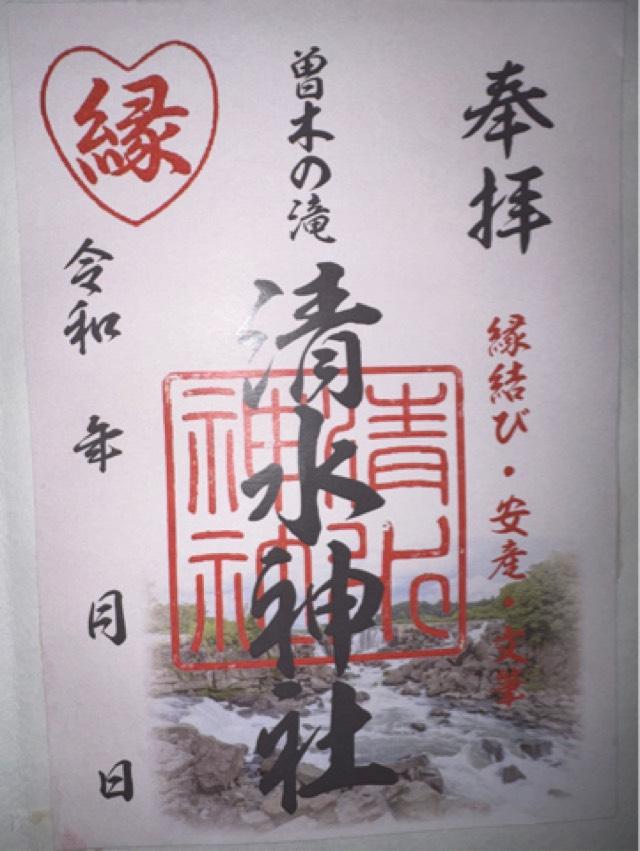 奉拝
縁結び・安産・文筆
曽木の滝
清水神社
清水
神社
縁
令和 年 月 日